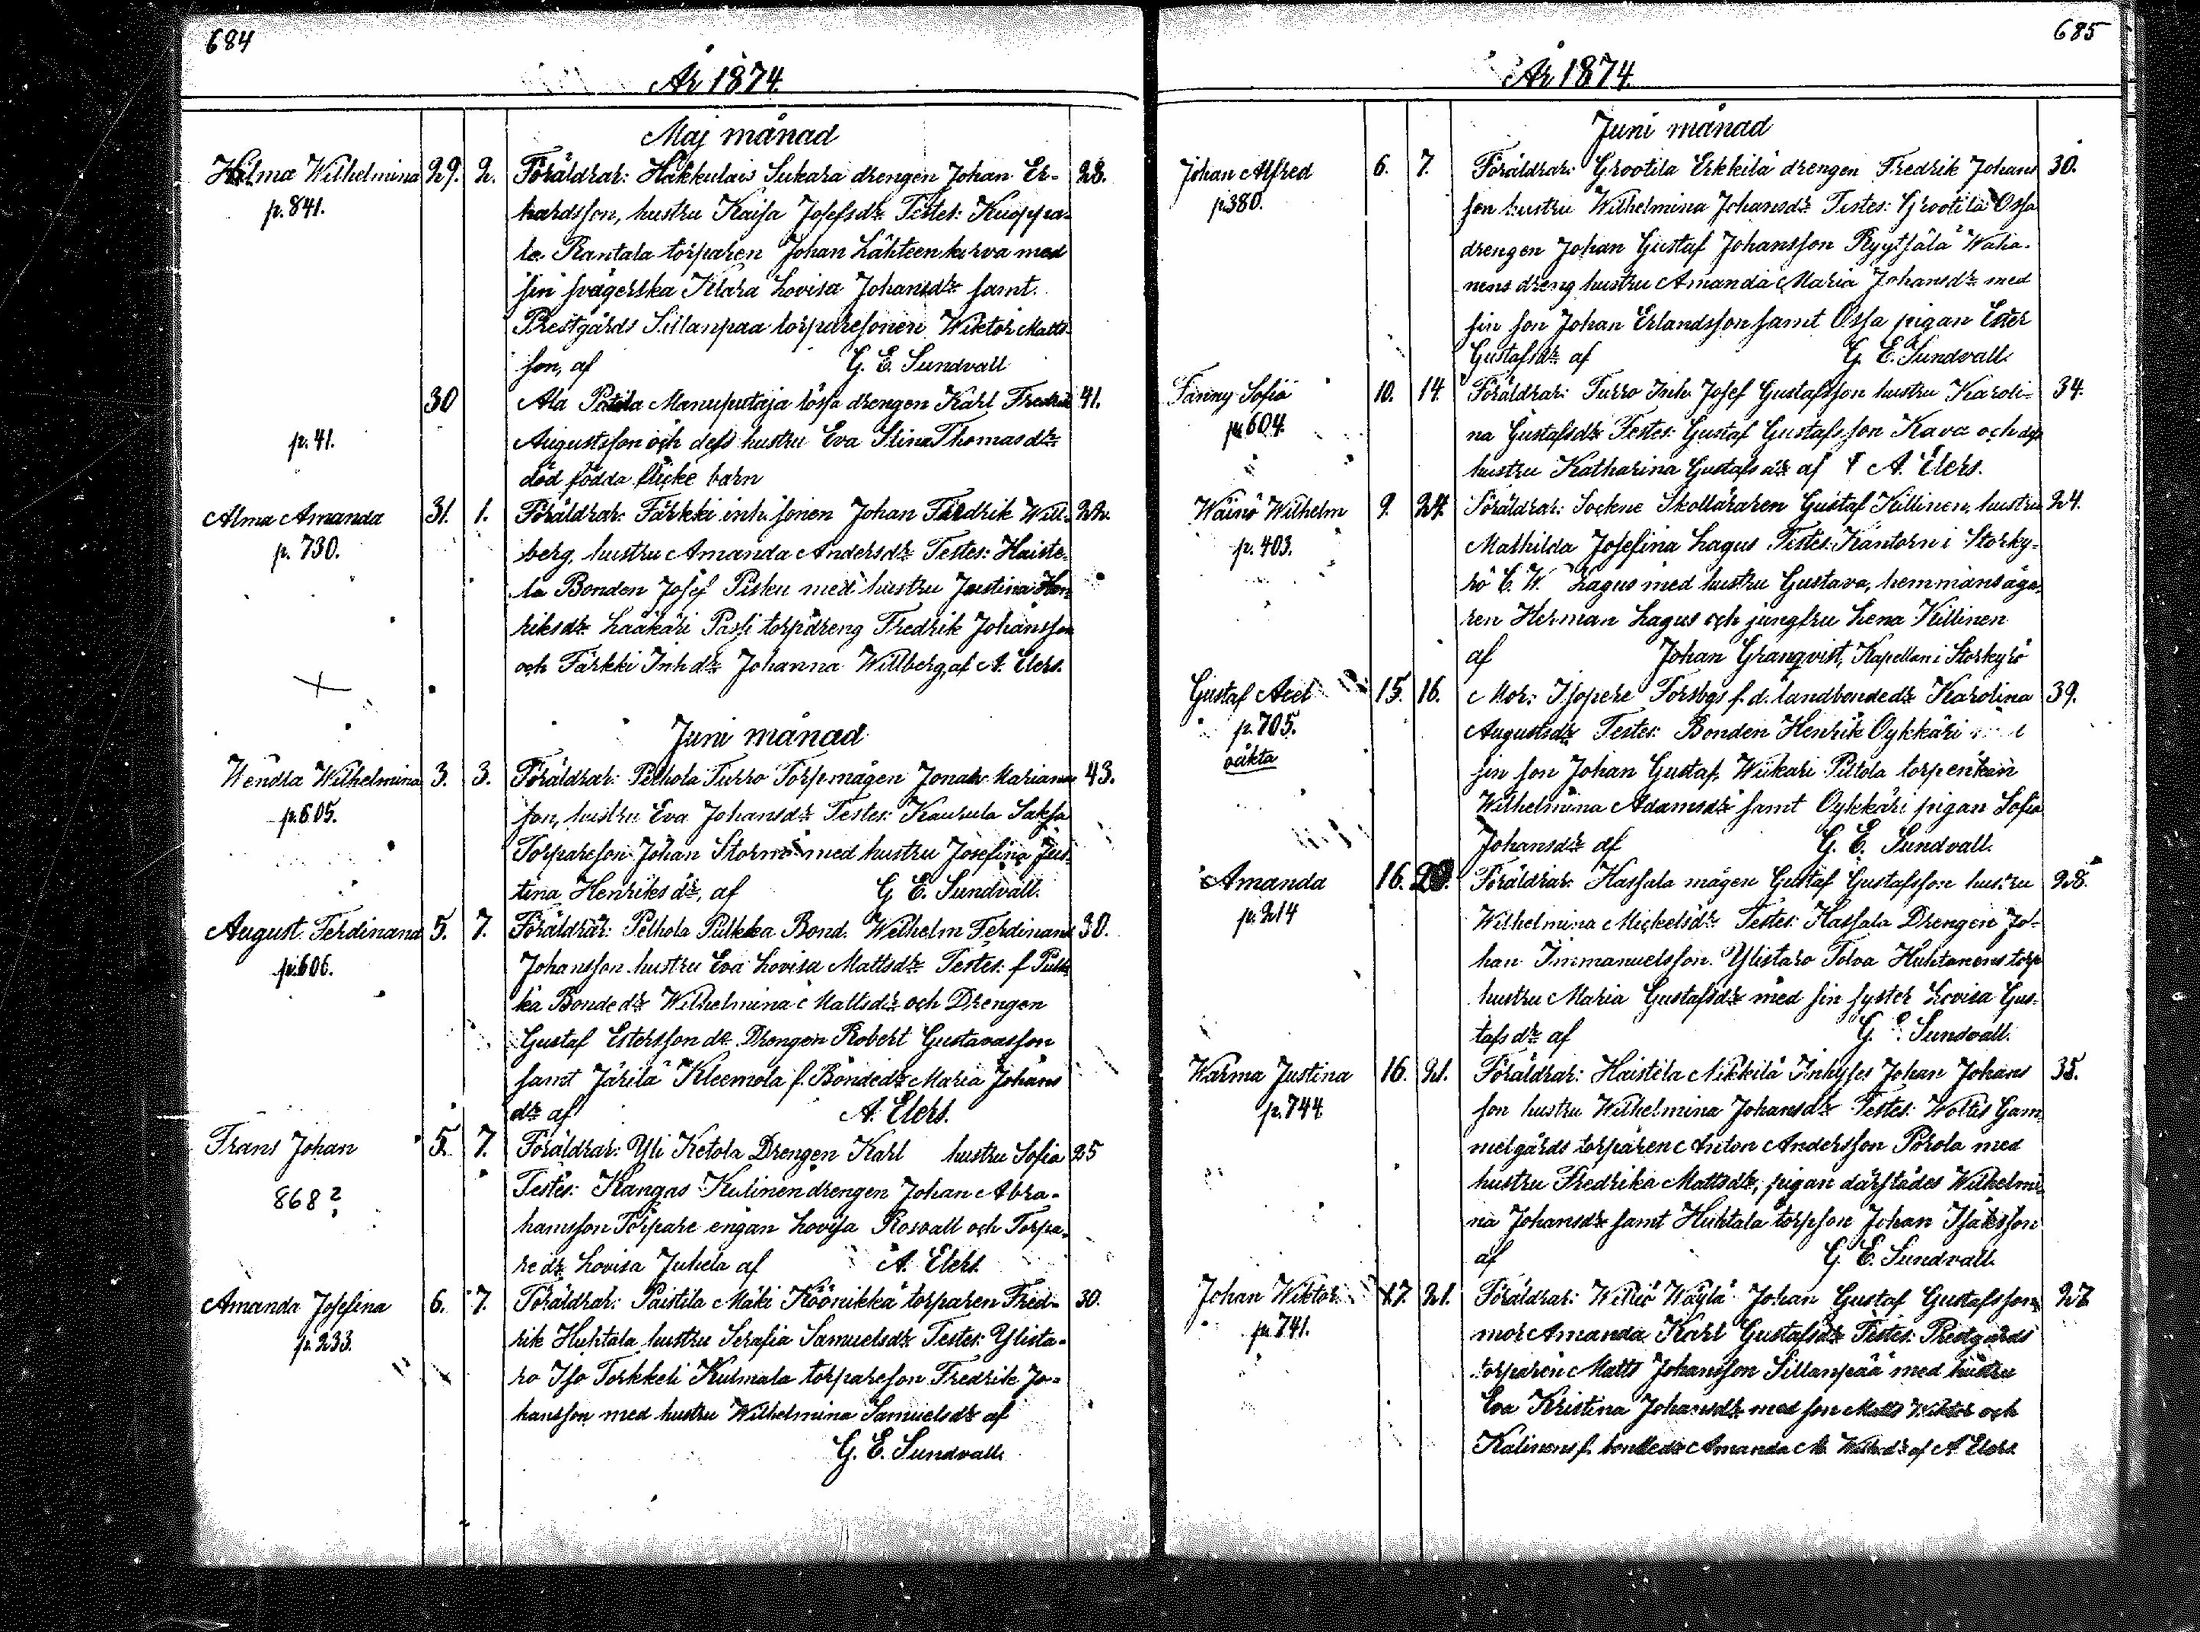 684
År 1874.
Maj månad
Hilma Wilhelmina 29. 2. Föräldrar: Hakkulais Sukara drengen Johan Er- 28.
p. 841. hardsson, hustru Kaisa Josefsdr Testes: Kuoppa-
la Rantala torparen Johan Lähteenkorva med
sin svägerska Klara Lovisa Johansdr samt
Prestgårds Sillanpää torparesonen Wiktor Matts-
son, af G. E. Sundvall
30 Ala Potila Manuputaja lösa drengen Karl Fredrik 41.
p. 41. Augustsson och dess hustru Eva Stina Thomasdr
död födda flicke barn
Alma Amanda 31. 1. Föräldrar: Färkki inh. sonen Johan Fredrik Will- 22.
p. 730. berg, hustru Amanda Andersdr Testes: Haiste-
la Bonden Josef Pisku med hustru Justina Hen
riksdr Laakäri Passi torpdreng Fredrik Johansson
och Färkki Inhdr Johanna Willberg, af A. Elers.
Juni månad
Wendla Wilhelmina 3. 3. Föräldrar: Pelhola Turro Torpmågen Jonas Mariann 43.
p. 605. son, hustru Eva Johansdr Testes: Kaurula Saksa
Torpareson Johan Storm med hustru Josefina Jus-
tina Henriksdr, af G. E. Sundvall.
August Ferdinand 5. 7. Föräldrar: Pelhola Pulkka Bond. Wilhelm Ferdinand 30.
p. 606. Johansson hustru Eva Lovisa Mattsdr Testes: f. Pulk
ka Bondedr Wilhelmina Mattsdr och Drengen
Gustaf Estersson dr Drengen Robert Gustavasson
samt Järilä Kleemola f. Bondedr Maria Johans
dr af A. Elers.
Frans Johan 5. 7. Föräldrar: Yli Ketola Drengen Karl hustru Sofia 25
868? Testes: Kangas Kulinen drengen Johan Abra-
hamsson Torpare enkan Lovisa Rosvall och Torpa-
redr Lovisa Juhela af A. Elers.
Amanda Josefina 6. 7. Föräldrar: Paistila Mäki Köönikkä torparen Fred- 30.
p. 233. rik Huhtala hustru Serafia Samuelsdr Testes: Ylista-
ro Iso Torkkeli Kulmala torpareson Fredrik Jo-
hansson med hustru Wilhelmina Samuelsdr af
G. E. Sundvall.
685
År 1874.
Juni månad
Johan Alfred 6. 7. Föräldrar: Grootila Erkkilä drengen Fredrik Johans 30.
p. 380. son hustru Wilhelmina Johansdr Testes: Grootila Ossa
drengen Johan Gustaf Johansson Ryytsälä Waha-
nens dreng hustru Amanda Maria Johansdr med
sin son Johan Erlandsson samt Ossa pigan Ester
Gustafsdr af G. E. Sundvall.
Fanny Sofia 10. 14. Föräldrar: Turro Inh. Josef Gustafsson hustru Karoli- 34.
p. 604. na Gustafsdr Testes: Gustaf Gustafsson Kava och dess
hustru Katharina Gustafsdr af A. Elers.
Wäinö Wilhelm 9. 24. Föräldrar: Sockne Skolläraren Gustaf Killinen, hustru 24.
p. 403. Mathilda Josefina Lagus Testes: Kantorn i Storky-
rö C. W. Lagus med hustru Gustava, hemmansäga-
ren Herman Lagus och jungfru Lena Killinen
af Johan Granqvist, Kapellan i Storkyrö
Gustaf Axel 15. 16. Mor: Isopere Forsbys f. d. landbondedr Karolina 39.
p. 705. Augustsdr Testes: Bonden Henrik Oykkäri
oäkta sin son Johan Gustaf, Wiikari Piltola torpenkan
Wilhelmina Adamsdr samt Oykkäri pigan Sofia
Johansdr af G. E. Sundvall.
Amanda 16. Föräldrar: Hassala mågen Gustaf Gustafsson hustru 28.
p. 214 Wilhelmina Mickelsdr Testes: Hassala Drengen Jo-
han Immanuelsson. Ylistaro Tolva Huhtanens torp
hustru Maria Gustafsdr med sin syster Lovisa Gus-
tafsdr af G. E. Sundvall.
Warma Justina 16. 21. Föräldrar: Haistila Nikkilä Inhyses Johan Johans 35.
p. 744 son hustru Wilhelmina Johansdr Testes: Woltis Gam
melgårds torparen Anton Andersson Porola med
hustru Fredrika Mattsdr, pigan därstädes Wilhelmi
na Johansdr samt Huhtala torpson Johan Isaksson
af G. E. Sundvall.
Johan Wiktor 17. 21. Föräldrar: Willio Wäylä Johan Gustaf Gustafsson 27.
p. 741. mor Amanda Karl Gustafsdr Testes: Prestgårds
torparen Matts Johansson Sillanpää med hustru
Eva Kristina Johansdr med son Matts Wiktor och
Kalinens f. bondedr Amanda M. Wilh.dr af A. Elers.